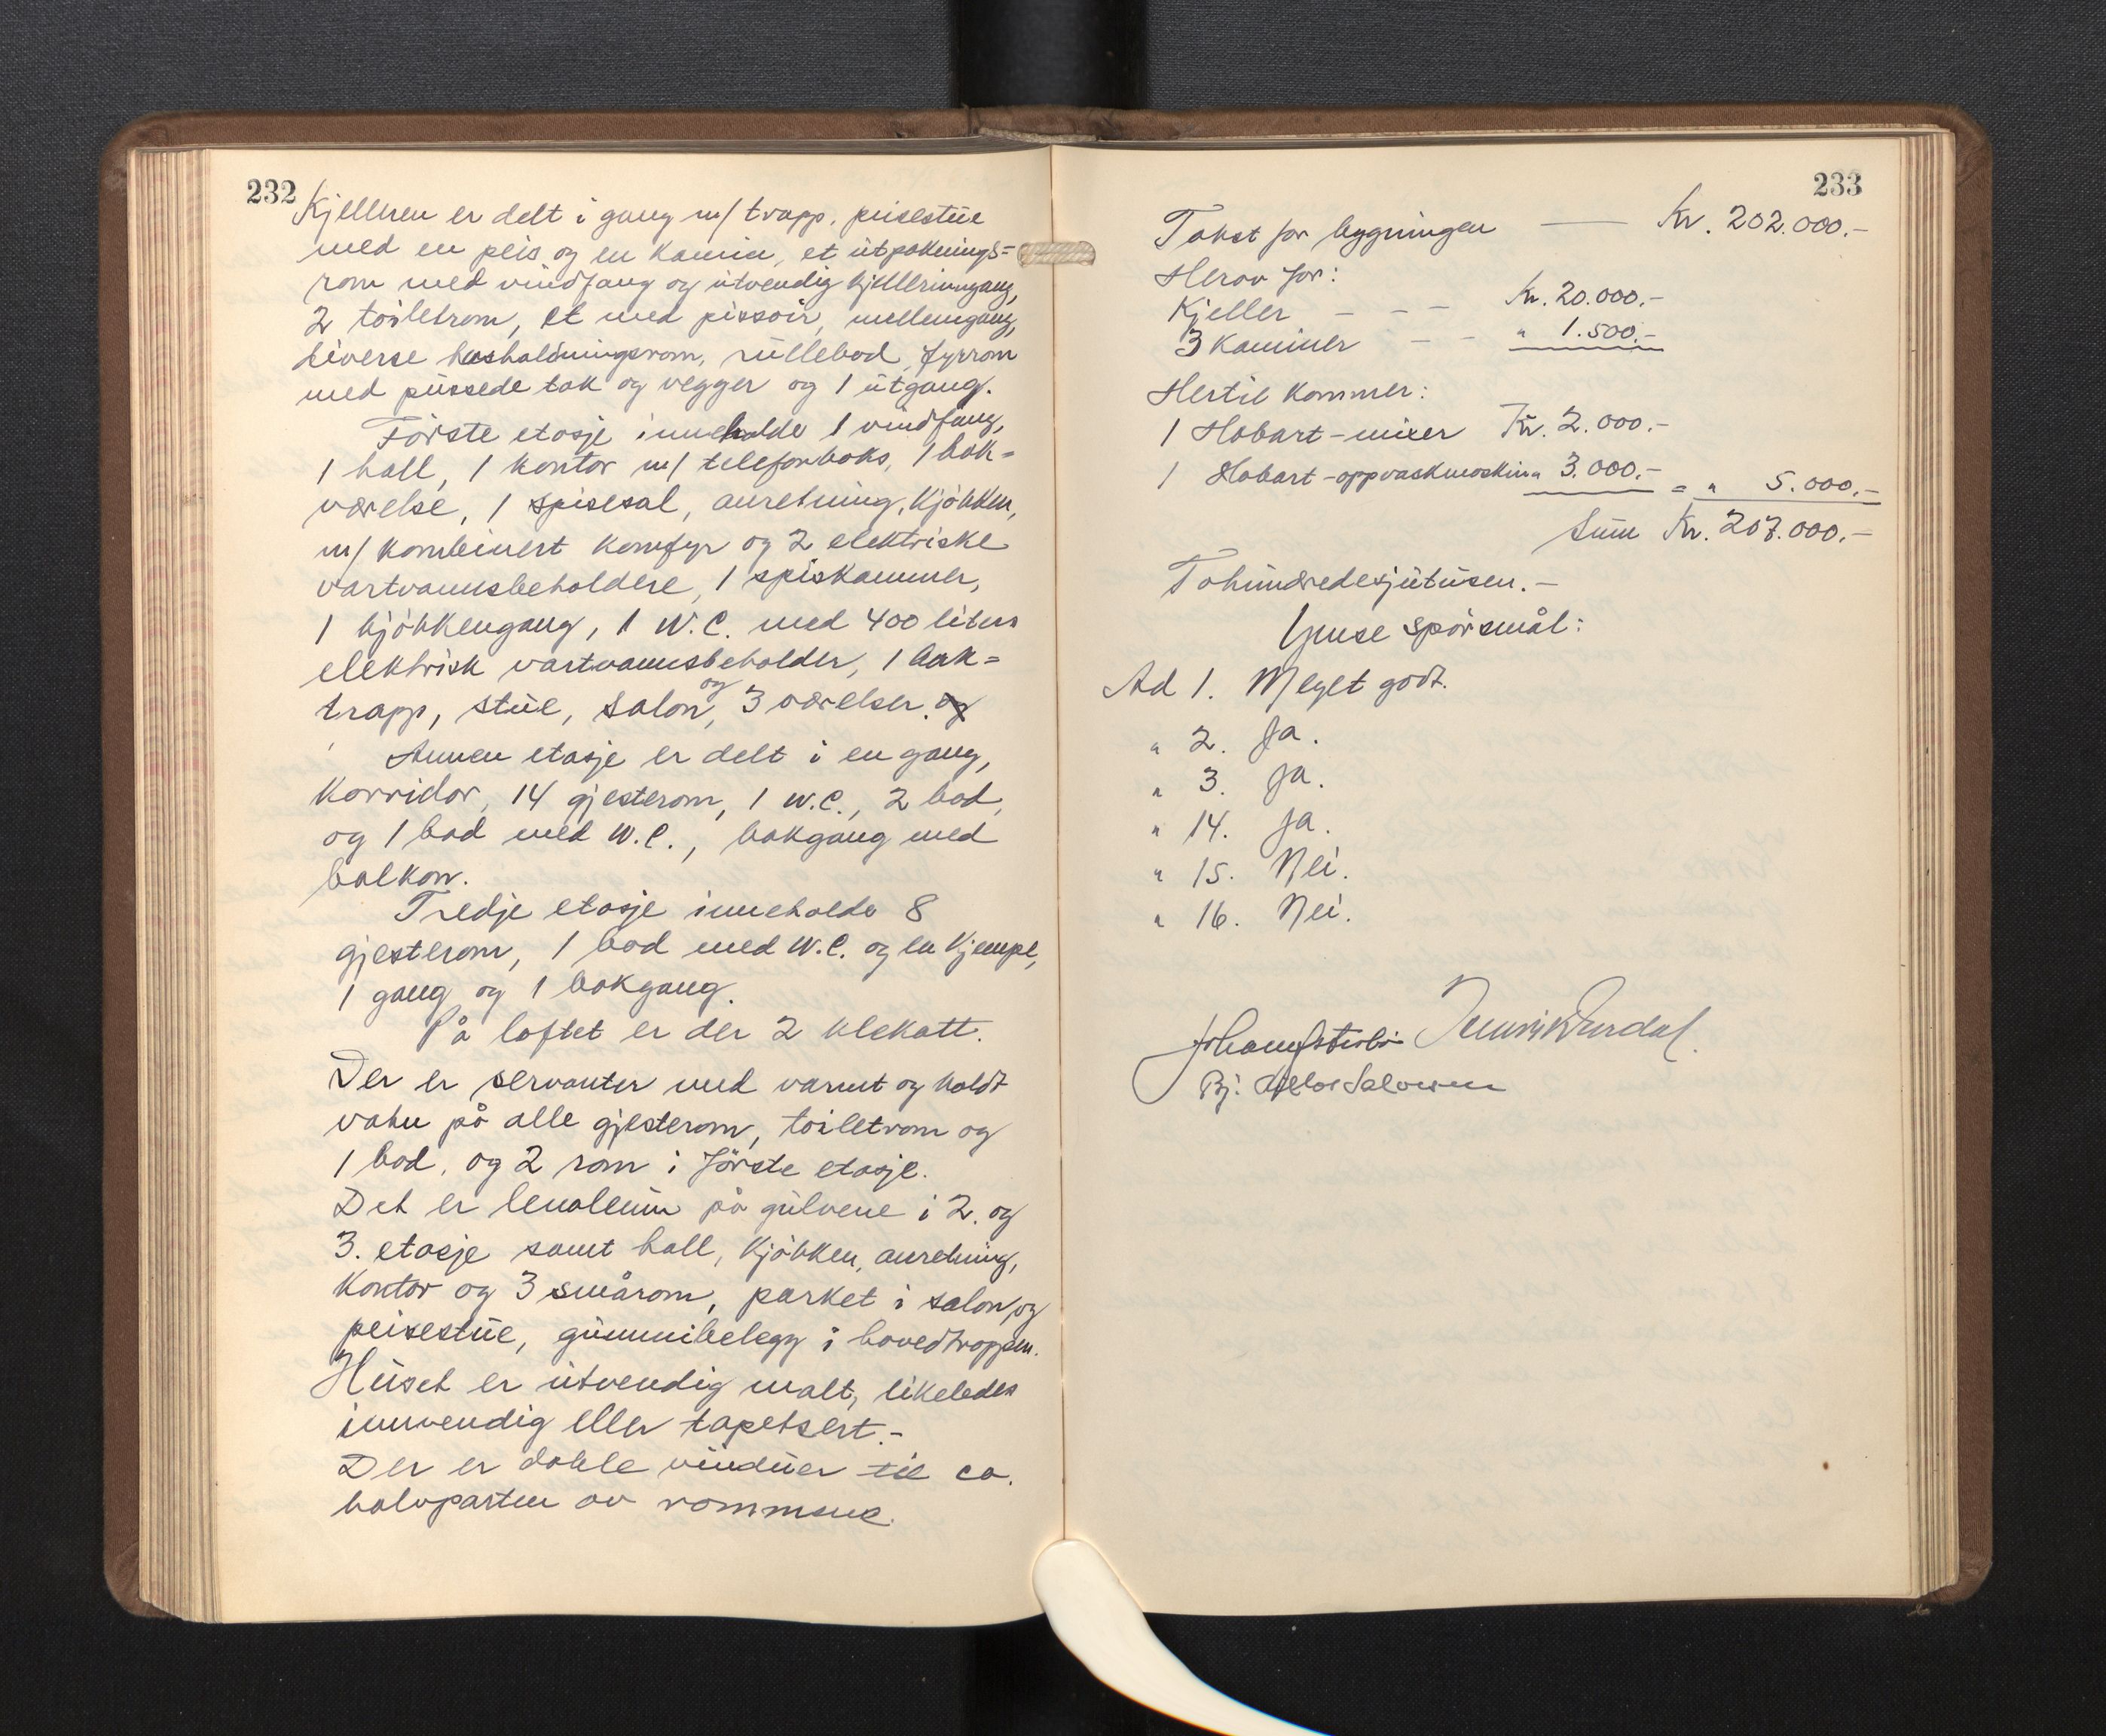 232
Kjelleren er delt i gang m/ trapp, peisestue
med en peis og en kamin, et utpaknings=
rom med vindfang og utvendig kjellerinngang,
2 toiletrom, et med pissoir, mellemgang,
diverse husholdningsrom, rullebod, fyrrom
med pussede tak og vegger og 1 utgang.
Første etasje inneholder 1 vindfang,
1 hall, 1 kontor m/ telefonboks, 1 bak=
værelse, 1 spisesal, anretning, kjøkken,
m/ kombinert komfyr og 2 elektriske
vartvannsbeholdere, 1 spiskammer,
1 kjøkkengang, 1 W.C. med 400 liters
elektrisk vartvannsbeholder, 1 bak=
trapp, stue, salon, og 3 værelser. og
Annen etasje er delt i en gang,
korridor, 14 gjesterom, 1 W.C., 2 bad,
og 1 bad med W.C., bakgang med
balkon.
Tredje etasje inneholder 8
gjesterom, 1 bad med W.C. og en kjempe,
1 gang og 1 bakgang.
På loftet er der 2 klekott.
Der er servanter med varmt og koldt
vann på alle gjesterom, toiletrom og
1 bad, og 2 rom i første etasje.
Det er lenoleum på gulvene i 2. og
3. etasje samt hall, kjøkken, anretning,
kontor og 3 smårom, parket i salon og
peisestue, gummibelegg i hovedtrappen.
Huset er utvendig malt, likeledes
innvendig eller tapetsert.-
Der er doble vinduer til ca.
halvparten av rommene.
233
Takst for bygningen — Kr. 202.000.-
Herav for:
Kjeller - - - Kr. 20.000.-
3 kaminer - - " 1.500.-
Hertil kommer:
1 Hobart-mixer Kr. 2.000.-
1 Hobart-oppvaskmaskin " 3.000.- = " 5.000.-
Sum Kr. 207.000.-
Tohundredesjutusen.-
Ymse spørsmål:
Ad 1. Meget godt.
" 2. Ja.
" 3. Ja.
" 14. Ja.
" 15. Nei.
" 16. Nei.